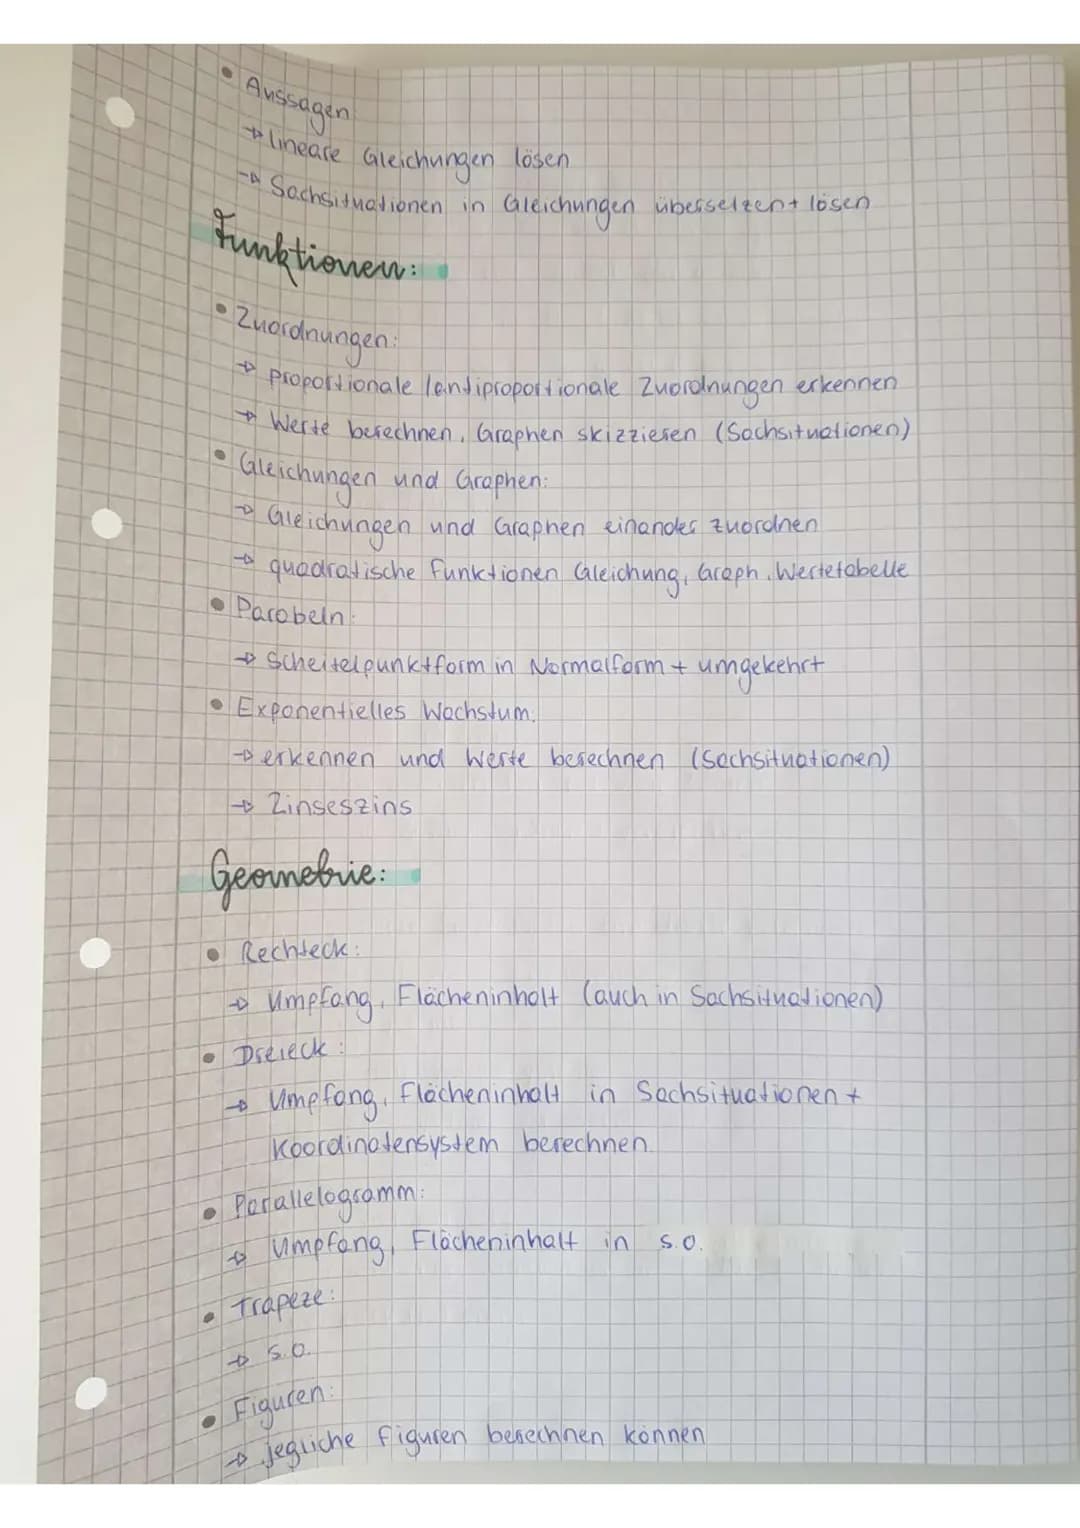 • Aussagen
→ lineare Gleichungen lösen
→ Sachsituationen in Gleichungen übersetzen + lösen
Funktionen:
• Zuordnungen:
→ proportionale / antiproportionale Zuordnungen erkennen
→ Werte berechnen, Graphen skizzieren (Sachsituationen)
• Gleichungen und Graphen:
→ Gleichungen und Graphen einander zuordnen
→ quadratische Funktionen Gleichung, Graph, Wertetabelle
• Parabeln:
→ Scheitelpunktform in Normalform + umgekehrt
• Exponentielles Wachstum:
→ erkennen und Werte berechnen (Sachsituationen)
→ Zinseszins
Geometrie:
• Rechteck:
→ Umpfang, Flächeninhalt (auch in Sachsituationen)
• Dreieck:
→ Umpfang, Flächeninhalt in Sachsituationen +
Koordinatensystem berechnen.
• Parallelogramm:
→ Umpfang, Flächeninhalt in s.o.
• Trapeze:
→ s.o.
• Figuren:
→ jegliche Figuren berechnen können